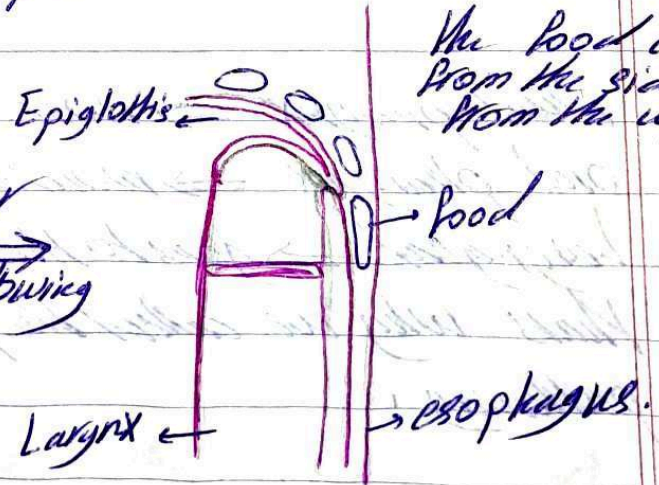 the food
from the
from the
Epiglottis
food
Larynx
esophagus.